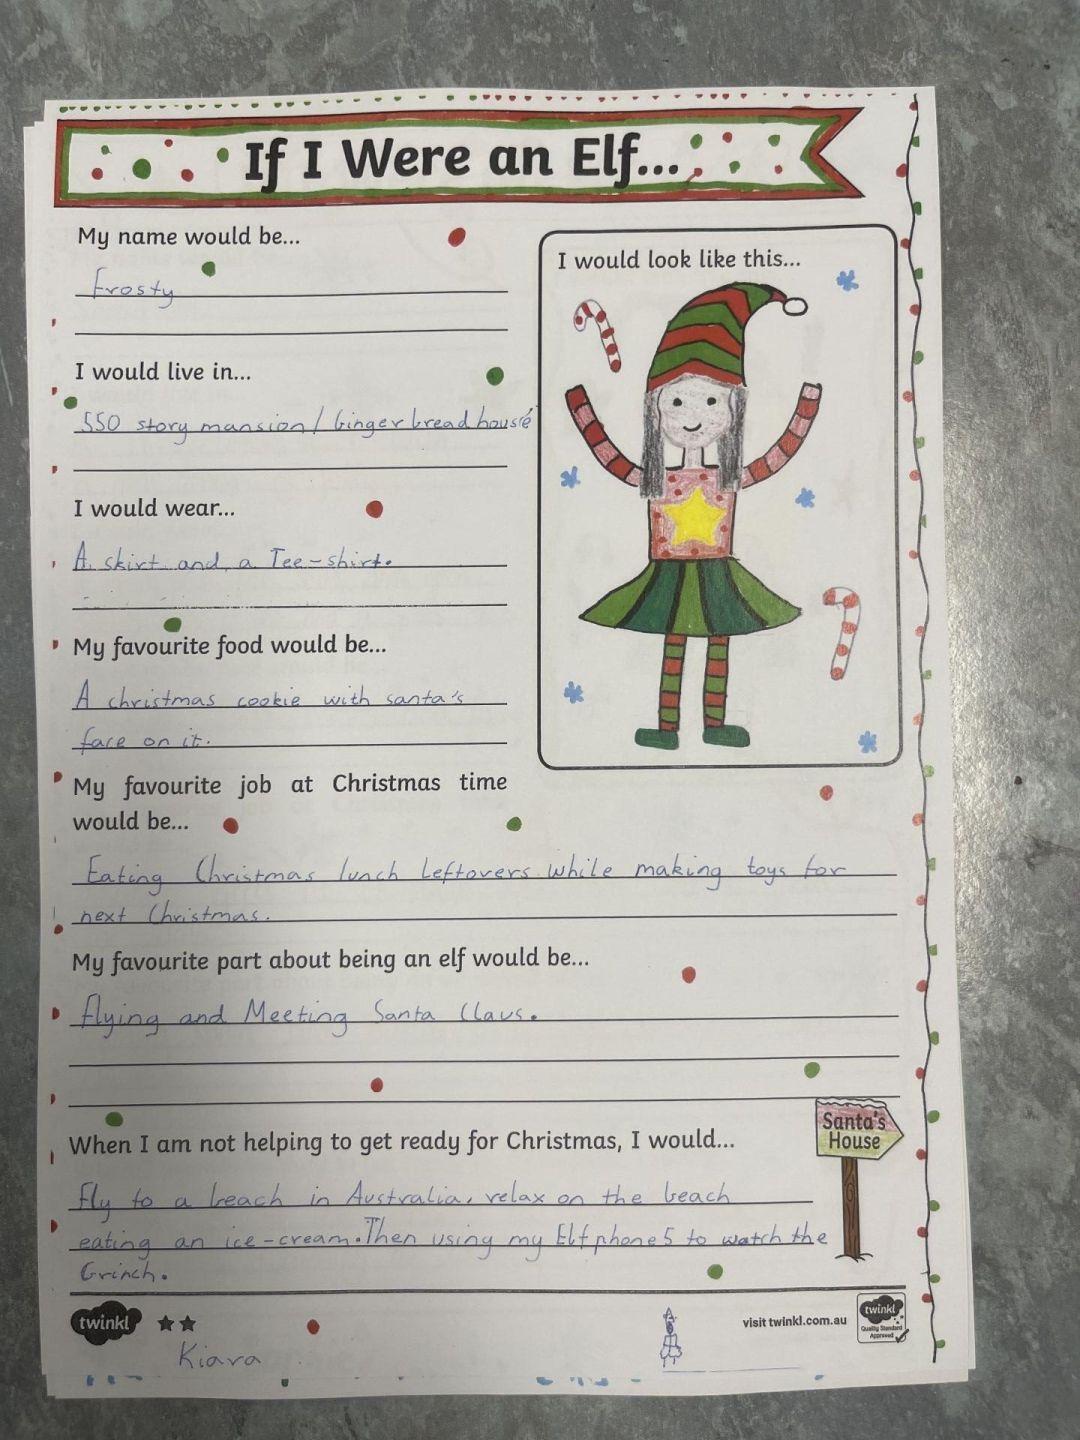 If I Were an Elf...
My name would be...
Frosty
I would live in...
550 story mansion / Gingerbread house
I would wear...
A skirt and a Tee-shirt.
My favourite food would be...
A christmas cookie with santa's
face on it.
I would look like this...
My favourite job at Christmas time
would be...
Eating Christmas lunch leftovers while making toys for
next Christmas.
My favourite part about being an elf would be...
Flying and Meeting Santa Claus.
When I am not helping to get ready for Christmas, I would...
Fly to a beach in Australia, relax on the beach
eating an ice-cream. Then using my Elfphone5 to watch the
Grinch.
Santa's
House
twinkl
Kiara
visit twinkl.com.au
twinkl
Quality Standard
Approved